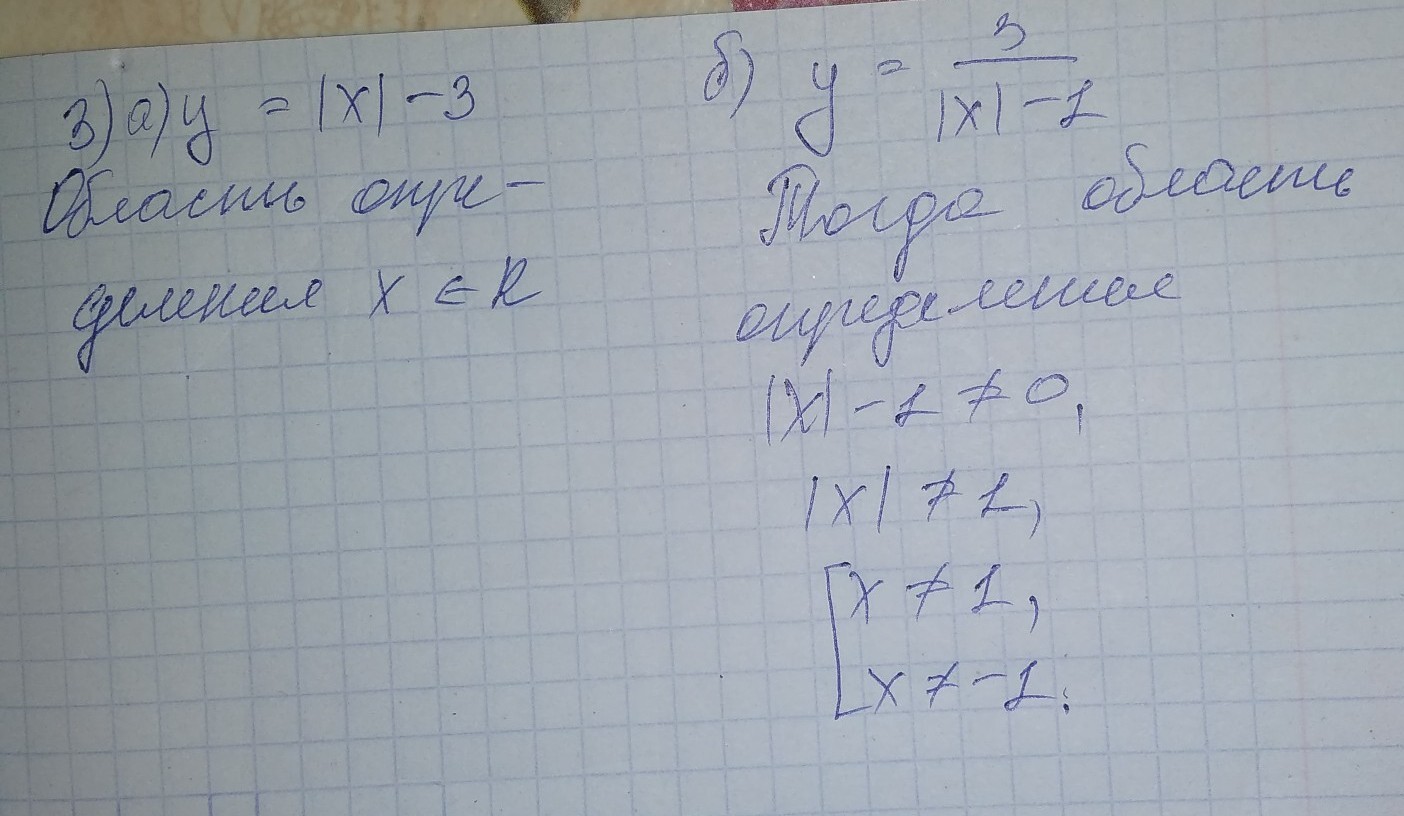 3) а) y = |x| - 3
Область опре-
деления x ∈ R
б) y = 3 / (|x| - 1)
Тогда область
определения
|x| - 1 ≠ 0,
|x| ≠ 1,
[ x ≠ 1,
x ≠ -1.